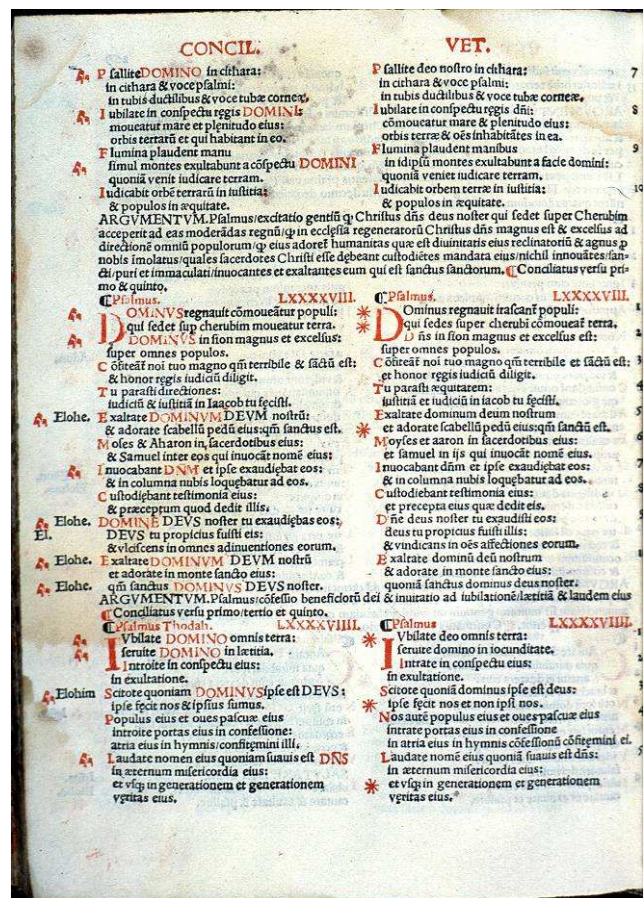 CONCIL.
PsalliteDOMINO in cithara:
in cithara & voce psalmi:
in tubis ductilibus & voce tubæ corneæ,
Iubilate in conspectu ręgis DOMINI:
moueatur mare et plenitudo eius:
orbis terrarū et qui habitant in eo.
Flumina plaudent manu
simul montes exultabunt a cōspectu DOMINI
quoniā venit iudicare terram.
Iudicabit orbē terrarū in iustitia:
& populos in æquitate.
VET.
Psallite deo nostro in cithara: 7
in cithara & voce psalmi:
in tubis ductilibus & voce tubæ corneæ.
Iubilate in conspectu ręgis dñi: 8
cōmoueatur mare & plenitudo eius:
orbis terræ & oēs inhabitātes in ea.
Flumina plaudent manibus 9
in idipsū montes exultabunt a facie domini:
quoniā veniet iudicare terram.
Iudicabit orbem terræ in iustitia: 10
& populos in æquitate.
ARGVMENTVM.Psalmus/excitatio gentiū ꝙ Christus dñs deus noster qui sedet super Cherubim
acceperit ad eas moderādas regnū/ꝙ in ecclęsia regeneratorū Christus dñs magnus est & excelsus ad
directionē omniū populorum/ꝙ eius adoret humanitas quæ est diuinitatis eius reclinatoriū & agnus ꝓ
nobis imolatus/quales sacerdotes Christi esse dębeant custodiētes mandata eius/nichil innouātes/san-
cti/puri et immaculati/inuocantes et exaltantes eum qui est sanctus sanctorum. ¶Conciliatus versu pri-
mo & quinto.
¶Psalmus. LXXXXVIII.
DOMINVS regnauit cōmoueātur populi:
qui sedet sup cherubim moueatur terra.
DOMINVS in sion magnus et excelsus:
super omnes populos.
Cōfiteāt noi tuo magno qm̄ terribile & sāctū est:
& honor ręgis iudiciū diligit.
Tu parasti directiones:
iudiciū & iustitiā in Iaacob tu fęcisti.
Elohe. Exaltate DOMINVM DEVM nostrū:
& adorate scabellū pedū eius:qm̄ sanctus est.
Moses & Aharon in sacerdotibus eius:
& Samuel inter eos qui inuocāt nomē eius.
Inuocabant DN̄M et ipse exaudiębat eos:
& in columna nubis loquębatur ad eos.
Custodiębant testimonia eius:
& præceptum quod dedit illis.
Elohe. DOMINE DEVS noster tu exaudiębas eos:
El. DEVS tu propicius fuisti eis:
& vlciscens in omnes adinuentiones eorum.
Elohe. Exaltate DOMINVM DEVM nostrū
et adorate in monte sancto eius:
Elohe. qm̄ sanctus DOMINVS DEVS noster.
¶Psalmus. LXXXXVIII.
Dominus regnauit irascant̄ populi: 1
qui sedes super cherubī cōmoueat̄ terra.
Dn̄s in sion magnus et excelsus est: 2
super omnes populos.
Cōfiteāt noi tuo magno qm̄ terribile & sāctū est: 3
et honor ręgis iudiciū diligit.
Tu parasti æquitatem:
iustitiā et iudiciū in iacob tu fęcisti.
Exaltate dominum deum nostrum
et adorate scabellū pedū eius:qm̄ sanctū est.
Moyses et aaron in sacerdotibus eius: 6
et samuel in ijs qui inuocāt nomē eius.
Inuocabant dn̄m et ipse exaudiębat eos: 7
& in columna nubis loquębatur ad eos.
Custodiebant testimonia eius:
et precepta eius quæ dedit eis.
Dn̄e deus noster tu exaudisti eos:
deus tu propicius fuisti illis:
& vindicans in oēs affectiones eorum.
Exaltate dominū deū nostrum
& adorate in monte sancto eius:
quoniā sanctus dominus deus noster.
ARGVMENTVM.Psalmus/cōfessio beneficiorū dei & inuitatio ad iubilationē/lætitiā & laudem eius
¶Conciliatus versu primo/tertio et quinto.
¶Psalmus Thodah. LXXXXVIIII.
IVbilate DOMINO omnis terra:
seruite DOMINO in lætitia,
Introite in conspectu eius:
in exultatione.
Elohim Scitote quoniam DOMINVS ipse est DEVS:
ipse fęcit nos & ipsius sumus.
Populus eius et oues pascuæ eius
introite portas eius in confessione:
atria eius in hymnis/confitęmini illi.
Laudate nomen eius quoniam suauis est DN̄S
in æternum misericordia eius:
et vsq; in generationem et generationem
vęritas eius.
¶Psalmus LXXXXVIIII.
IVbilate deo omnis terra:
seruite domino in iocunditate.
Intrate in conspectu eius:
in exultatione.
Scitote quoniā dominus ipse est deus:
ipse fęcit nos et non ipsi nos.
Nos autē populus eius et oues pascuæ eius
intrate portas eius in confessione
in atria eius in hymnis cōfessionū cōfitęmini ei.
Laudate nomē eius quoniā suauis est dn̄s:
in æternum misericordia eius:
et vsq; in generationem et generationem
vęritas eius.